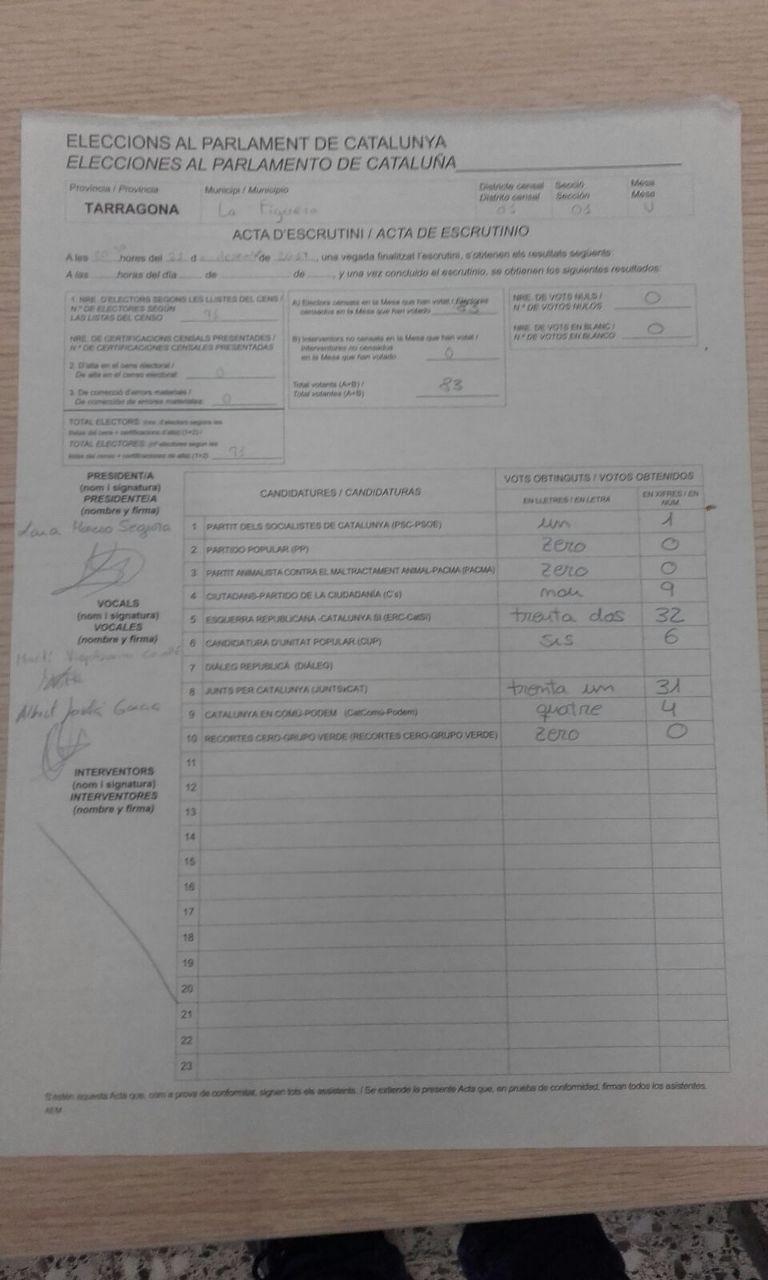 ELECCIONS AL PARLAMENT DE CATALUNYA
ELECCIONES AL PARLAMENTO DE CATALUÑA
Província / Provincia Municipi / Municipio Districte censal Secció Mesa
Distrito censal Sección Mesa
TARRAGONA La Figuera 01 01 U
ACTA D'ESCRUTINI / ACTA DE ESCRUTINIO
A les hores del 21 d de 2017, una vegada finalitzat l'escrutini, s'obtenen els resultats següents:
A las horas del día de de , y una vez concluido el escrutinio, se obtienen los siguientes resultados:
1. NRE. D'ELECTORS SEGONS LES LLISTES DEL CENS /
N.º DE ELECTORES SEGÚN
LAS LISTAS DEL CENSO
NRE. DE CERTIFICACIONS CENSALS PRESENTADES /
N.º DE CERTIFICACIONES CENSALES PRESENTADAS
2. D'alta en el cens electoral /
De alta en el censo electoral: 0
3. De correcció d'errors materials /
De corrección de errores materiales: 0
TOTAL ELECTORS: (nre. d'electors segons les
llistes del cens + certificacions d'alta) (1+2) /
TOTAL ELECTORES: (nº electores según las
listas del censo + certificaciones de alta) (1+2)
A) Electors censats en la Mesa que han votat / Electores
censados en la Mesa que han votado 83
B) Interventors no censats en la Mesa que han votat /
Interventores no censados
en la Mesa que han votado 0
Total votants (A+B) /
Total votantes (A+B) 83
NRE. DE VOTS NULS /
N.º DE VOTOS NULOS 0
NRE. DE VOTS EN BLANC /
N.º DE VOTOS EN BLANCO 0
PRESIDENT/A
(nom i signatura)
PRESIDENTE/A
(nombre y firma)
Segura
VOCALS
(nom i signatura)
VOCALES
(nombre y firma)
Martí
Albert Garcia
INTERVENTORS
(nom i signatura)
INTERVENTORES
(nombre y firma)
CANDIDATURES / CANDIDATURAS VOTS OBTINGUTS / VOTOS OBTENIDOS
EN LLETRES / EN LETRA EN XIFRES / EN NÚM.
1 PARTIT DELS SOCIALISTES DE CATALUNYA (PSC-PSOE) un 1
2 PARTIDO POPULAR (PP) zero 0
3 PARTIT ANIMALISTA CONTRA EL MALTRACTAMENT ANIMAL-PACMA (PACMA) zero 0
4 CIUTADANS-PARTIDO DE LA CIUDADANÍA (C's) nou 9
5 ESQUERRA REPUBLICANA -CATALUNYA SÍ (ERC-CatSí) trenta dos 32
6 CANDIDATURA D'UNITAT POPULAR (CUP) sis 6
7 DIÀLEG REPUBLICÀ (DIÀLEG)
8 JUNTS PER CATALUNYA (JUNTSxCAT) trenta un 31
9 CATALUNYA EN COMÚ-PODEM (CatComú-Podem) quatre 4
10 RECORTES CERO-GRUPO VERDE (RECORTES CERO-GRUPO VERDE) zero 0
11
12
13
14
15
16
17
18
19
20
21
22
23
S'estén aquesta Acta que, com a prova de conformitat, signen tots els assistents. / Se extiende la presente Acta que, en prueba de conformidad, firman todos los asistentes.